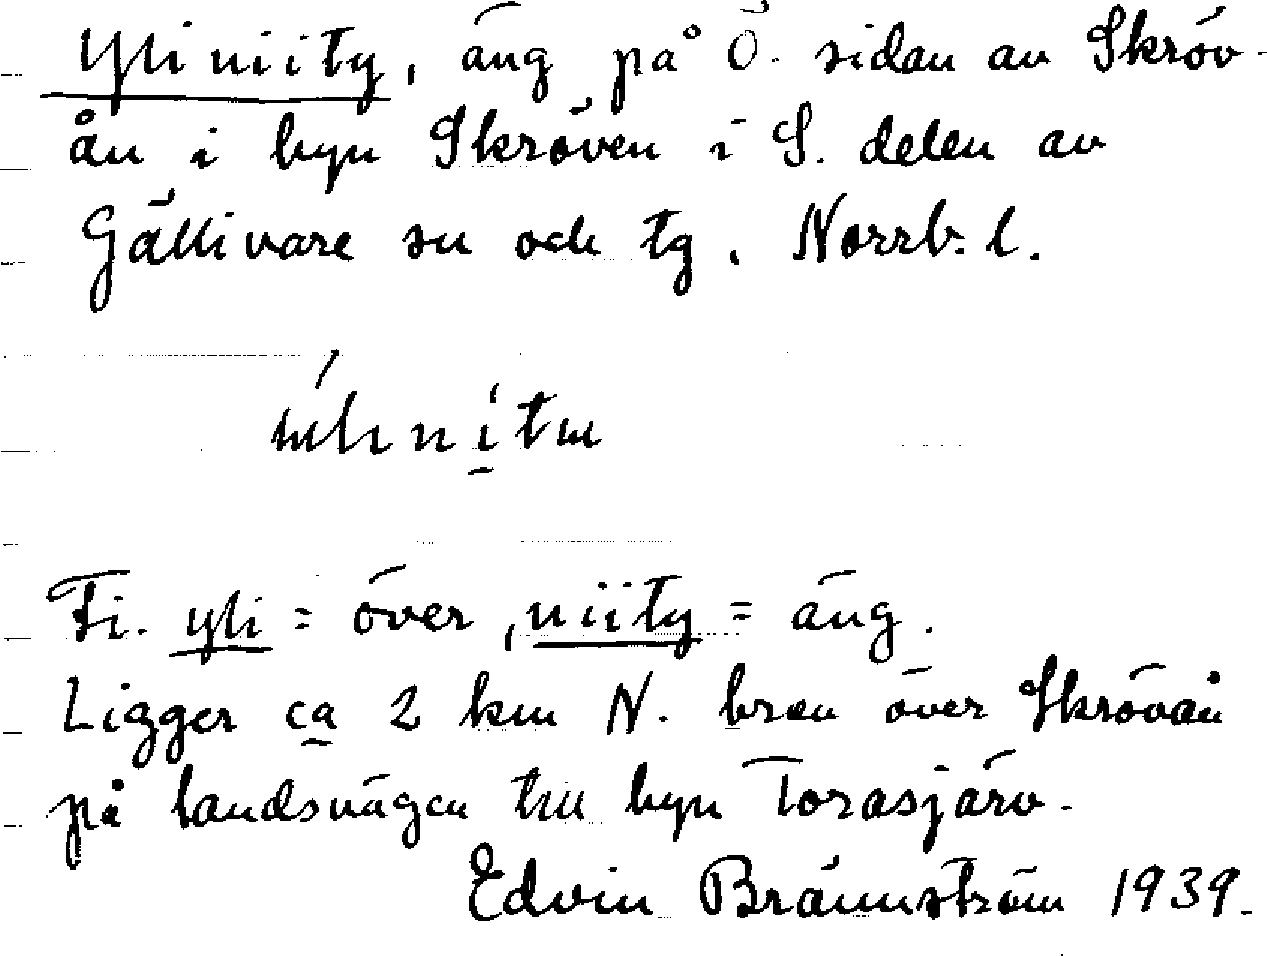 Yliniity, äng på Ö. sidan av Skröv-
ån i byn Skröven i S. delen av
Gällivare sn och tg, Norrb. l.
Fi. yli = över, niity = äng.
Ligger ca 2 km N. bron över Skrövån
på landsvägen till byn Torasjärv.
Edvin Brännström 1939.